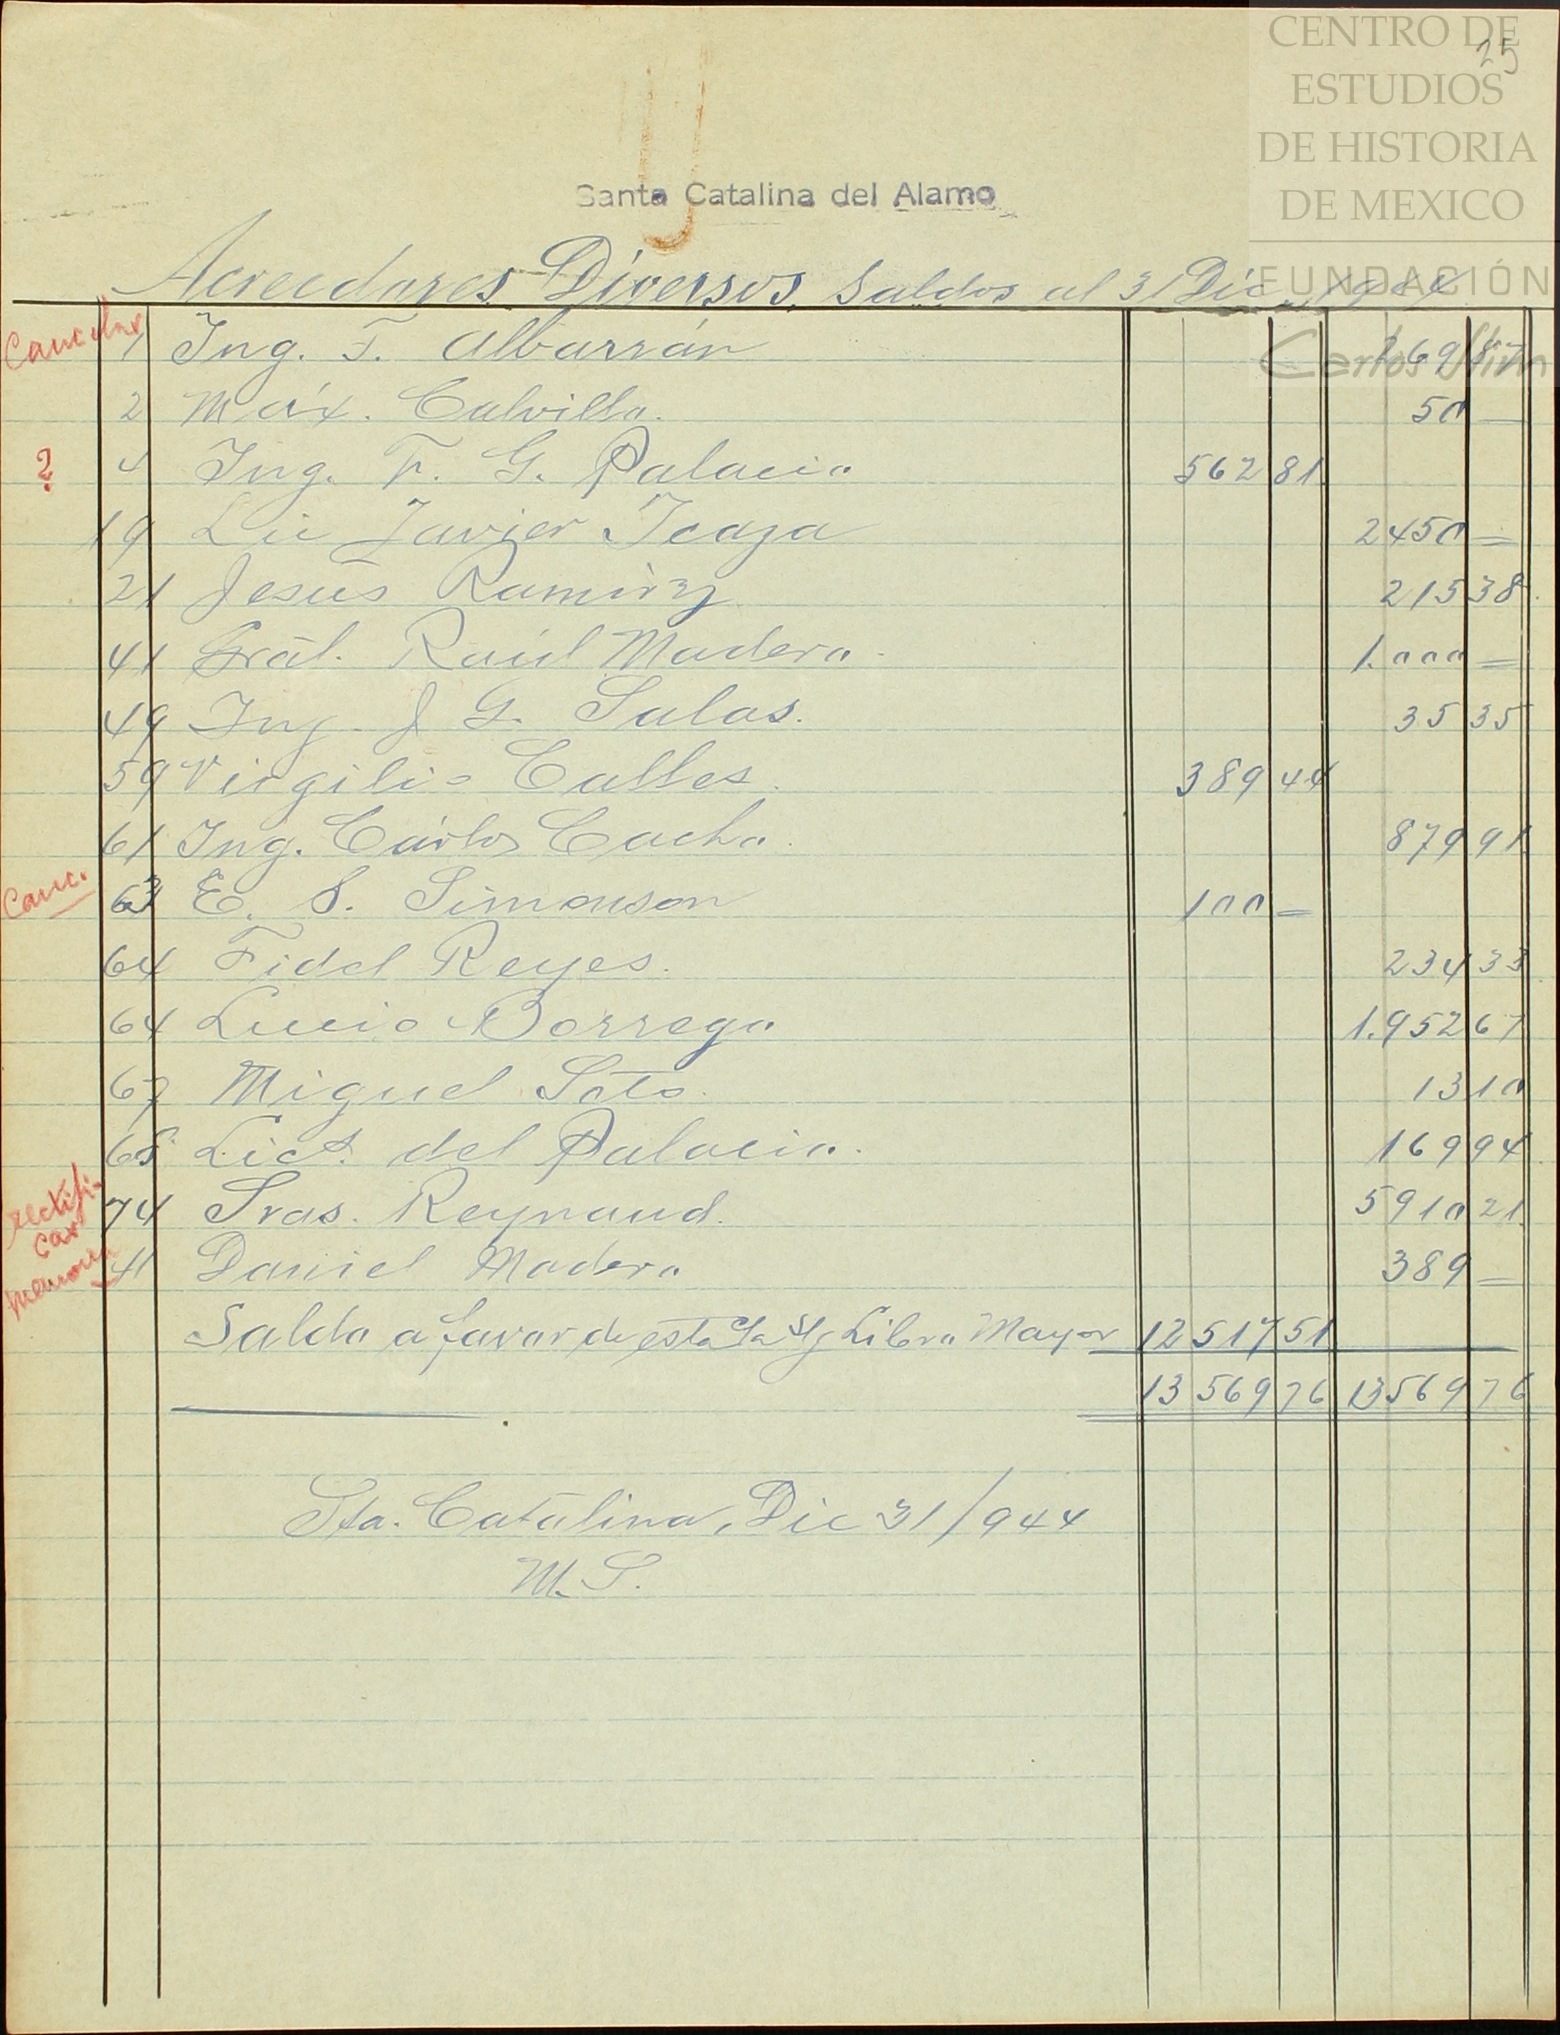 CENTRO DE
25
ESTUDIOS
DE HISTORIA
DE MEXICO
FUNDACIÓN
Carlos Slim
Santa Catalina del Alamo
Acreedores Diversos, Saldos al 31 Dic. 1944
Cancelar 1 Ing. F. Albarrán 269 87
2 Máx. Calvillo. 50 —
? 4 Ing. F. G. Palacio 562 81
19 Lic Javier Icaza 2450 =
21 Jesús Ramírez 215 38
41 Gral. Raúl Madero. 1.000 =
49 Ing. J G. Salas. 35 35
59 Virgilio Calles. 389 44
61 Ing. Cárlos Cacho. 879 91
Canc. 63 E. S. Simonson 100 =
64 Fidel Reyes. 234 33
64 Lucio Borrego 1.952 67
67 Miguel Soto. 13 10
68 Lict. del Palacio. 169 94
rectificar memoria 74 Sras. Reynaud. 5910 21
41 Daniel Madero 389 —
Saldo a favor de esta Cta S/g Libro Mayor 12517 51
13569 76 13569 76
Sta. Catalina, Dic 31/944
M. S.